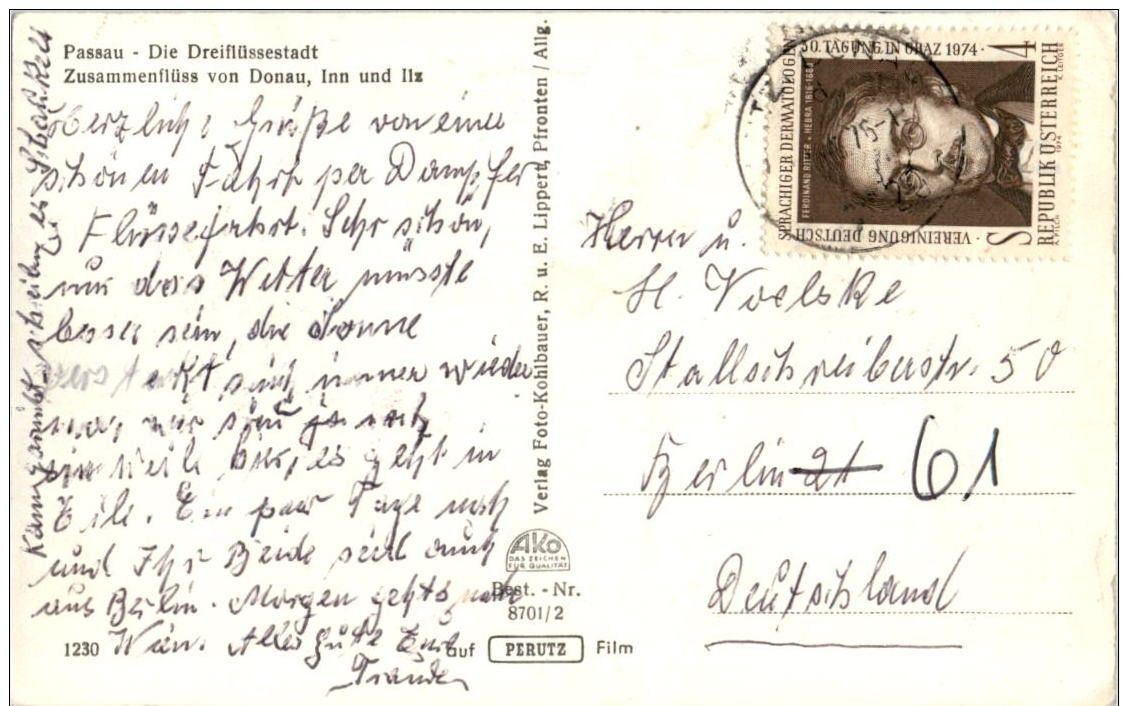 Passau - Die Dreiflüssestadt
Zusammenflüss von Donau, Inn und Ilz
Herzliche Grüße von einer
schönen Fahrt per Dampfer
Flüssefahrt. Sehr schön,
nur das Wetter müsste
besser sein, die Sonne
versteckt sich immer wieder
wir sind noch
ein weile hier, es geht in
Eile. Ein paar Tage noch
und Ihr Beide seid auch
aus Berlin. Morgen gehts nach
Wien. Alles Gute Eure
Traudel
Kann garnicht schreiben es schaukelt
1230
Verlag Foto-Kohlbauer, R. u. E. Lippert, Pfronten / Allg.
AKO
DAS ZEICHEN
FÜR QUALITÄT
Best. - Nr.
8701/2
auf PERUTZ Film
VEREINIGUNG DEUTSCH
SPRACHIGER DERMATOLOGEN
30. TAGUNG IN GRAZ 1974 ·
S 4
REPUBLIK ÖSTERREICH
FERDINAND RITTER v. HEBRA 1816-1880
A. PILCH
1974
Herrn u.
H. Voelske
Stallschreiberstr. 50
Berlin 21 61
Deutschland